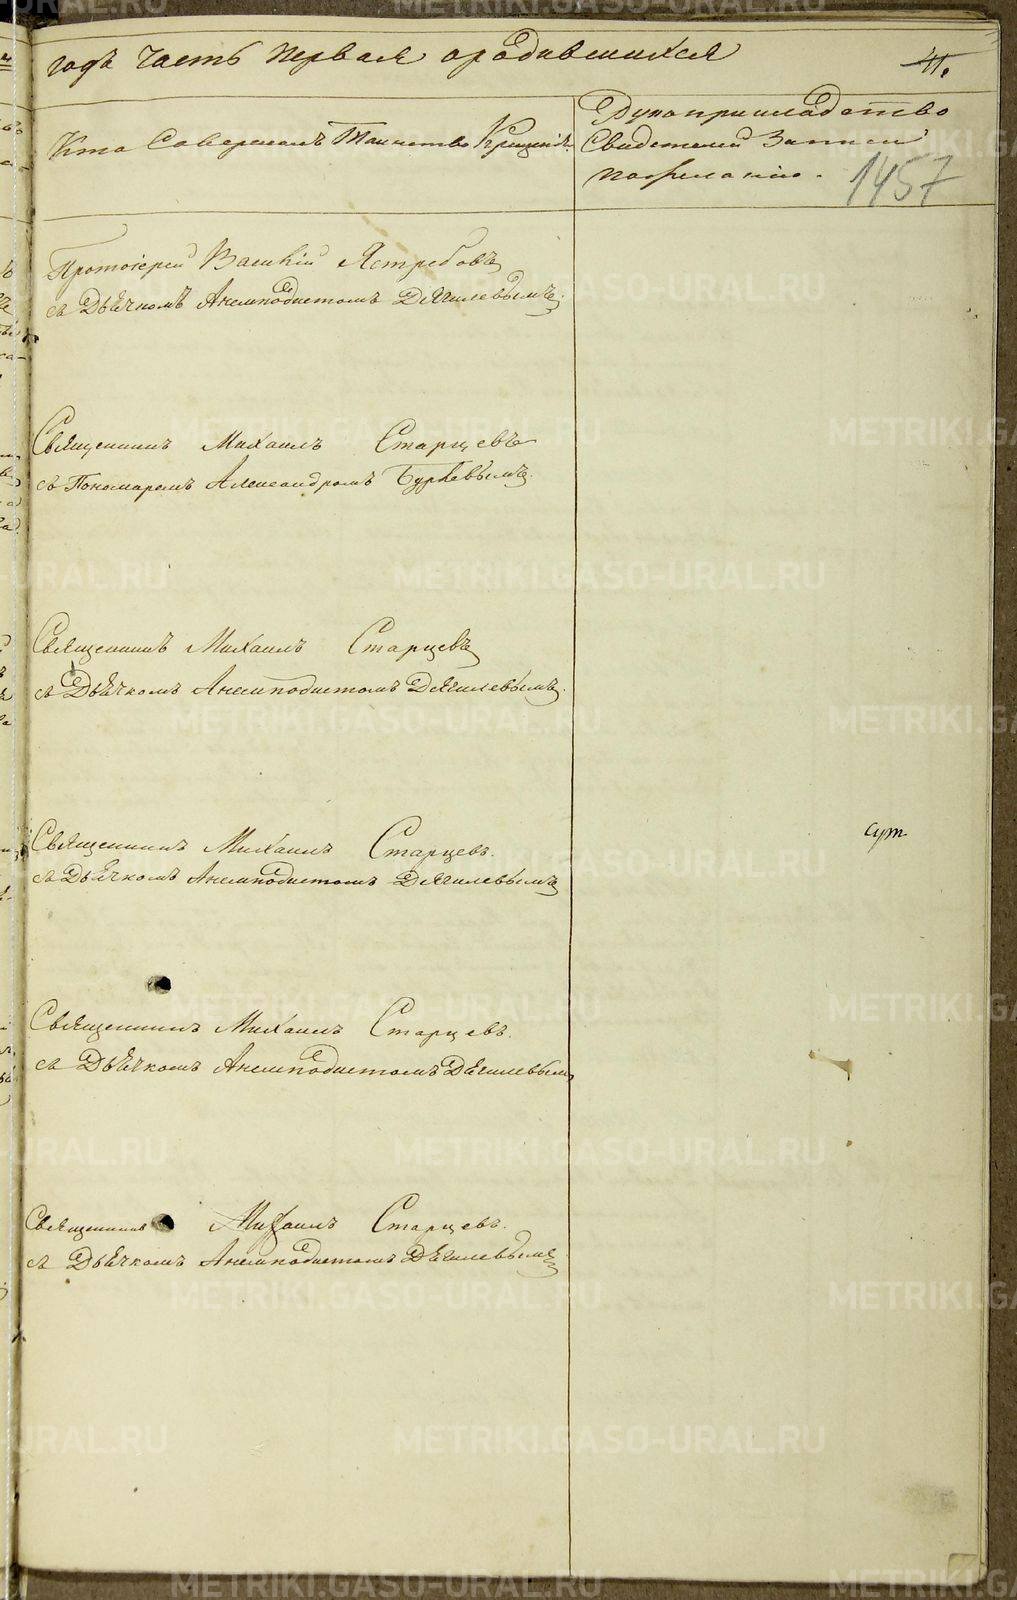 годъ часть первая ородившихся 41.
Кто Совершалъ Таинство Крещенія.
Рукоприкладство
Свидетелей Записи
пожеланию.
1457
Протоіерей Василій Ястребовъ
съ Дьячкомъ Анемподистомъ Дягилевымъ.
Священникъ Михаилъ Старцевъ
съ Пономаремъ Александромъ Бурневымъ.
Священникъ Михаилъ Старцевъ
съ Дьячкомъ Анемподистомъ Дягилевымъ.
Священникъ Михаилъ Старцевъ.
съ Дьячкомъ Анемподистомъ Дягилевымъ
Священникъ Михаилъ Старцевъ.
съ Дьячкомъ Анемподистомъ Дягилевым
Священникъ Михаилъ Старцевъ.
съ Дьячкомъ Анемподистомъ Дягилевымъ
METRIKI.GASO-URAL.RU